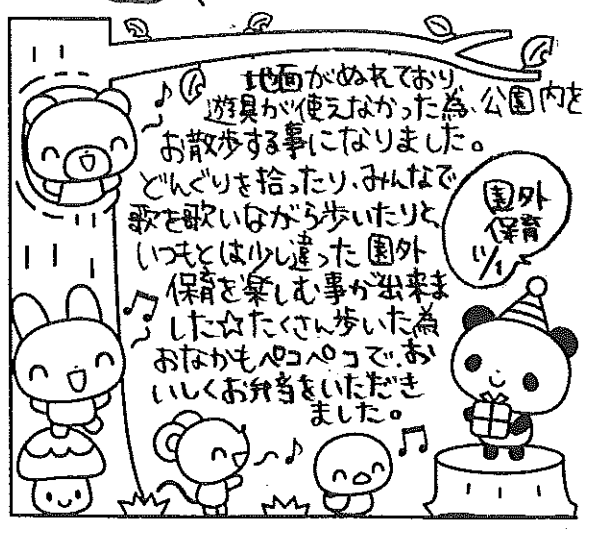 地面がぬれており
遊具が使えなかった為、公園内を
お散歩する事になりました。
どんぐりを拾ったり、みんなで
歌を歌いながら歩いたりと、
いつもとは少し違った園外
保育を楽しむ事が出来ま
した☆たくさん歩いた為
おなかもペコペコで、お
いしくお弁当をいただき
ました。
園外
保育
11/1